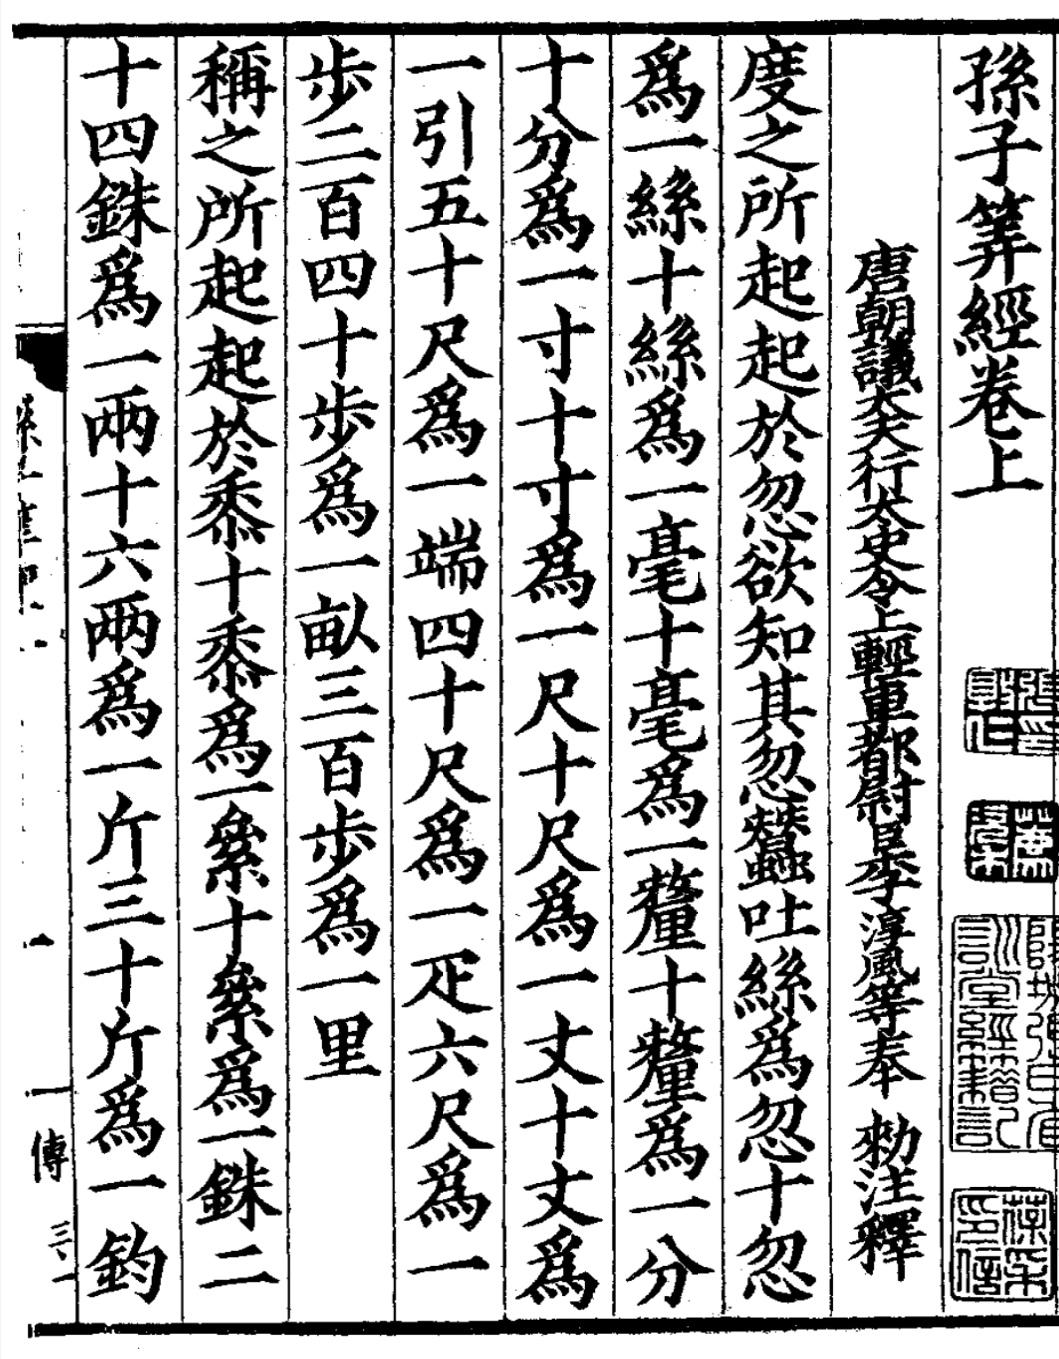 孫子筭經卷上
唐朝議大夫行太史令上輕車都尉臣李淳風等奉 勑注釋
度之所起起於忽欲知其忽蠶吐絲爲忽十忽
爲一絲十絲爲一毫十毫爲一氂十氂爲一分
十分爲一寸十寸爲一尺十尺爲一丈十丈爲
一引五十尺爲一端四十尺爲一疋六尺爲一
步二百四十步爲一畝三百步爲一里
稱之所起起於黍十黍爲一絫十絫爲一銖二
十四銖爲一兩十六兩爲一斤三十斤爲一鈞
一 傳